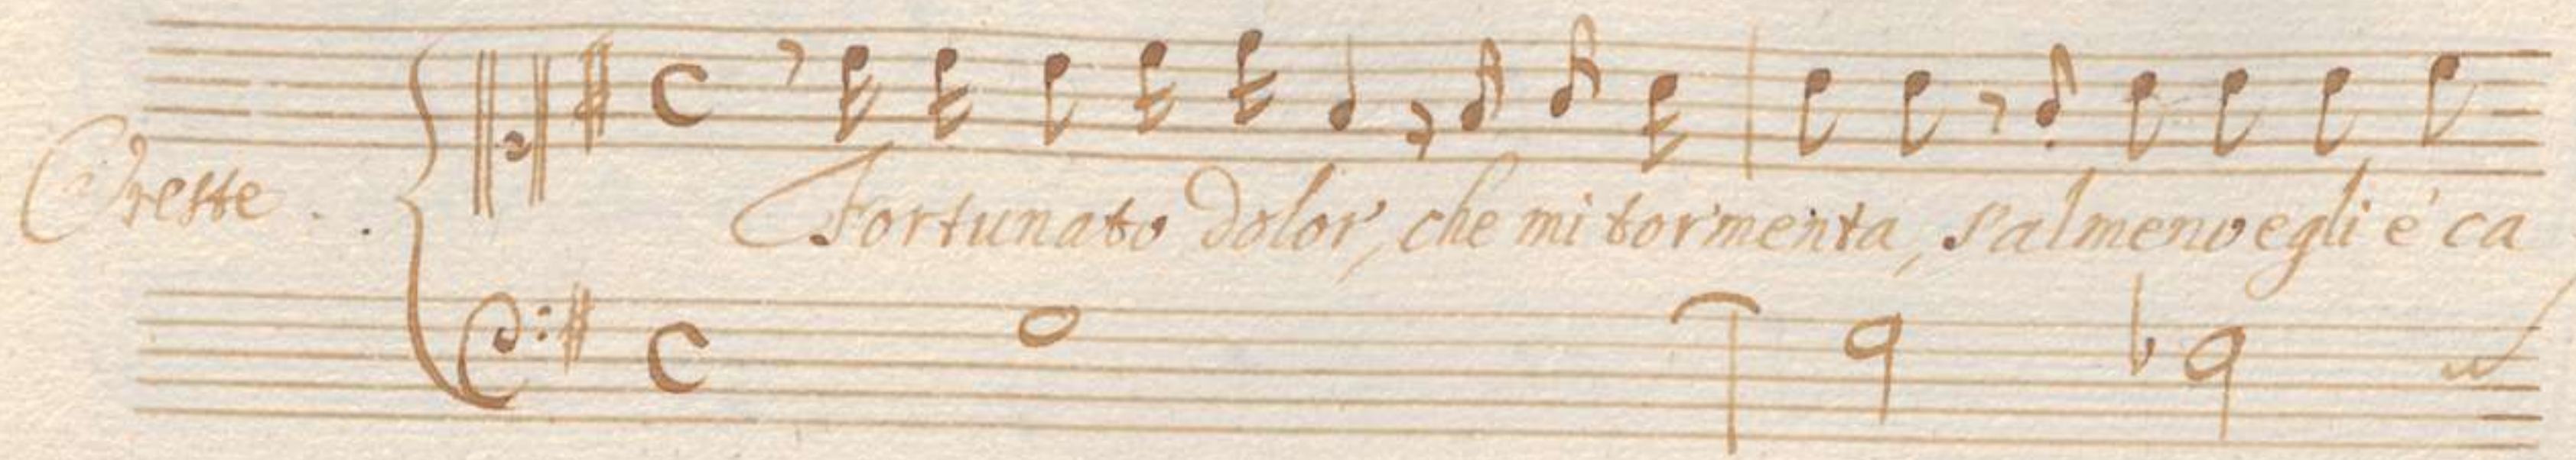 Oreste.
Fortunato dolor, che mi tormenta, s'almeno egli é ca